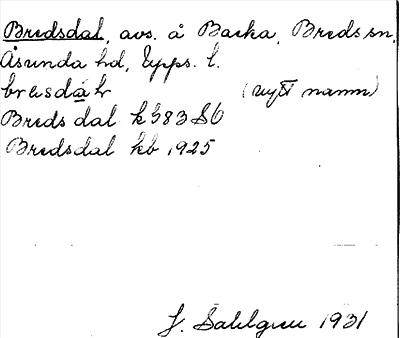 Bredsdal, avs. å Backa, Breds sn,
Åsunda hd, Upps. l.
bresdàl (nytt namn)
Breds dal kb 83 Sö
Bredsdal kb 1925
J. Sahlgren 1931